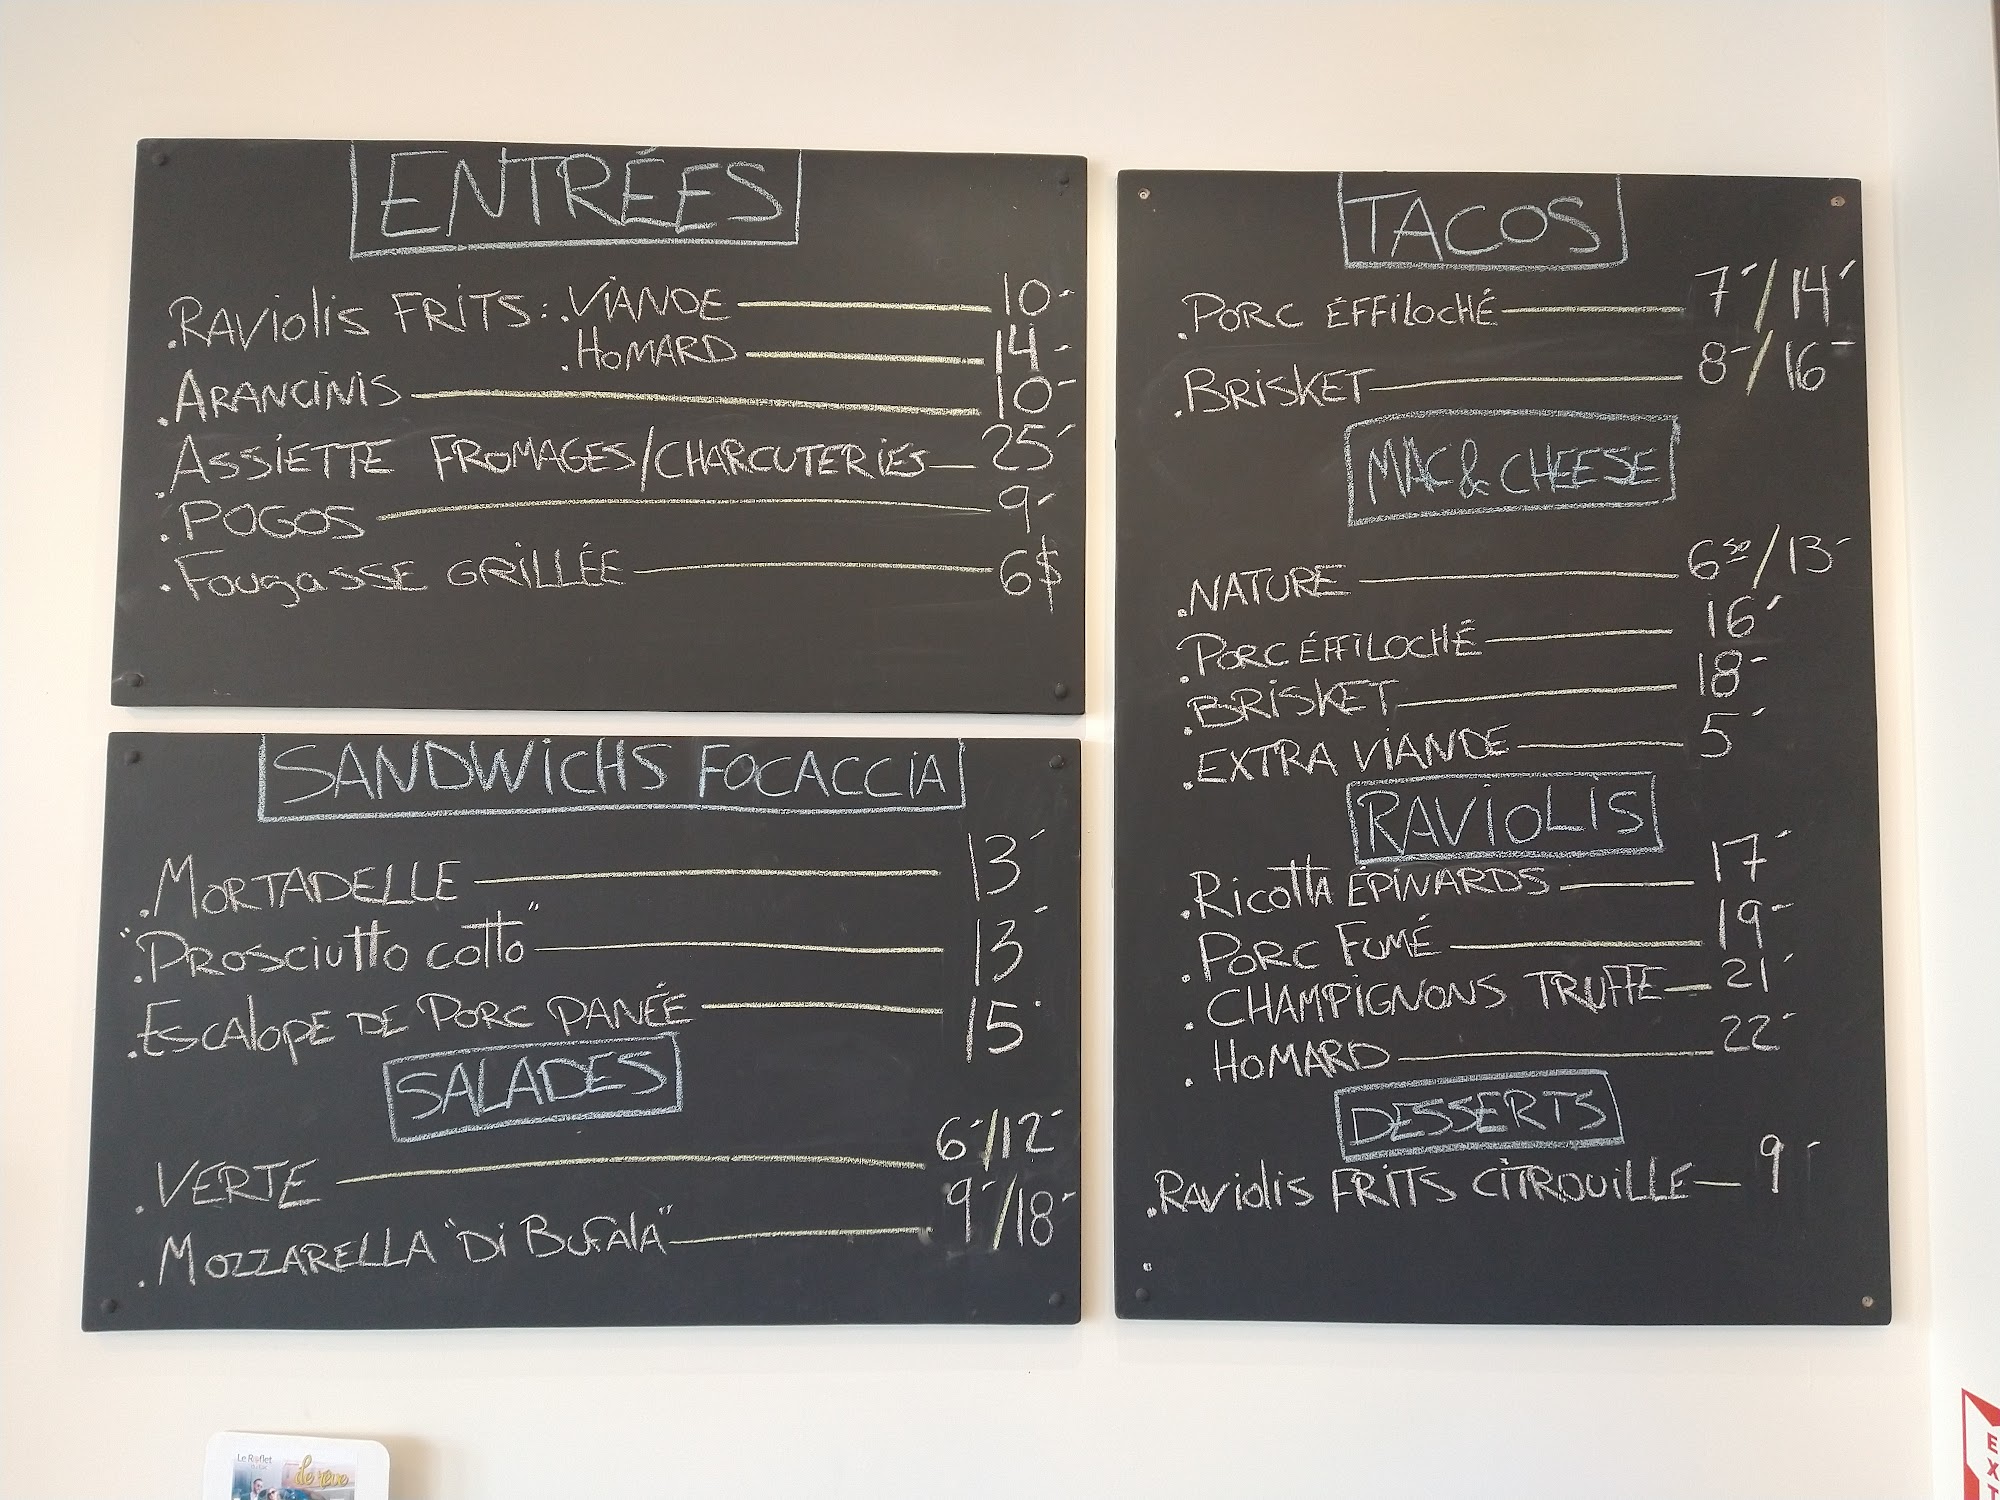 ENTRÉES
.RAViolis FRiTS: .ViANDE 10-
.HoMARD 14-
.ARANCiNiS 10-
.ASSiETTE FROMAGES/CHARCUTERiES 25-
.POGOS 9-
.Fougasse GRiLLÉE 6$
SANDWiCHS FOCACCiA
.MORTADELLE 13-
."PROSciutto cotto" 13-
.EscAlope DE PORC PANÉE 15-
SALADES
.VERTE 6-/12-
.MOZZARELLA "Di BuFalA" 9-/18-
TACOS
.PORC ÉFFiLOCHÉ 7-/14-
.BRiSKET 8-/16-
MAC&CHEESE
.NATURE 650/13-
.PORC ÉFFiLOCHÉ 16-
.BRiSKET 18-
.EXTRA ViANDE 5-
RAViOLiS
.Ricotta ÉPiNARDS 17-
.PORC FUMÉ 19-
.CHAMPiGNONS TRUFFE 21-
.HoMARD 22-
DESSERTS
.RAViolis FRiTS CiTROUiLLE 9-
.
Le Reflet
de rêve
EXT